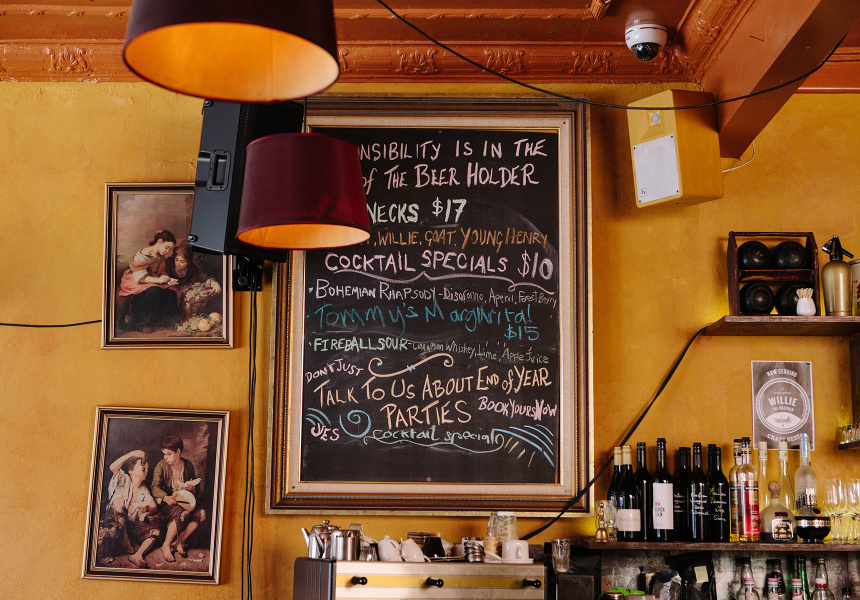 NSIBILITY IS IN THE
of THE BEER HOLDER
NECKS $17
WILLIE, GOAT, YOUNG HENRY
COCKTAIL SPECIALS $10
BOHEMIAN RHAPSODY - Disaronno, Aperol, Forest Berry
Tommy's Margarita!
$15
FIREBALL SOUR - Cinnamon Whiskey, Lime, Apple Juice
DON'T JUST
TALK TO US ABOUT END of YEAR
PARTIES BOOK YOURS NOW
YES cocktail specials
NOW SERVING
WILLIE
THE BOATMAN
CRAFT BEER